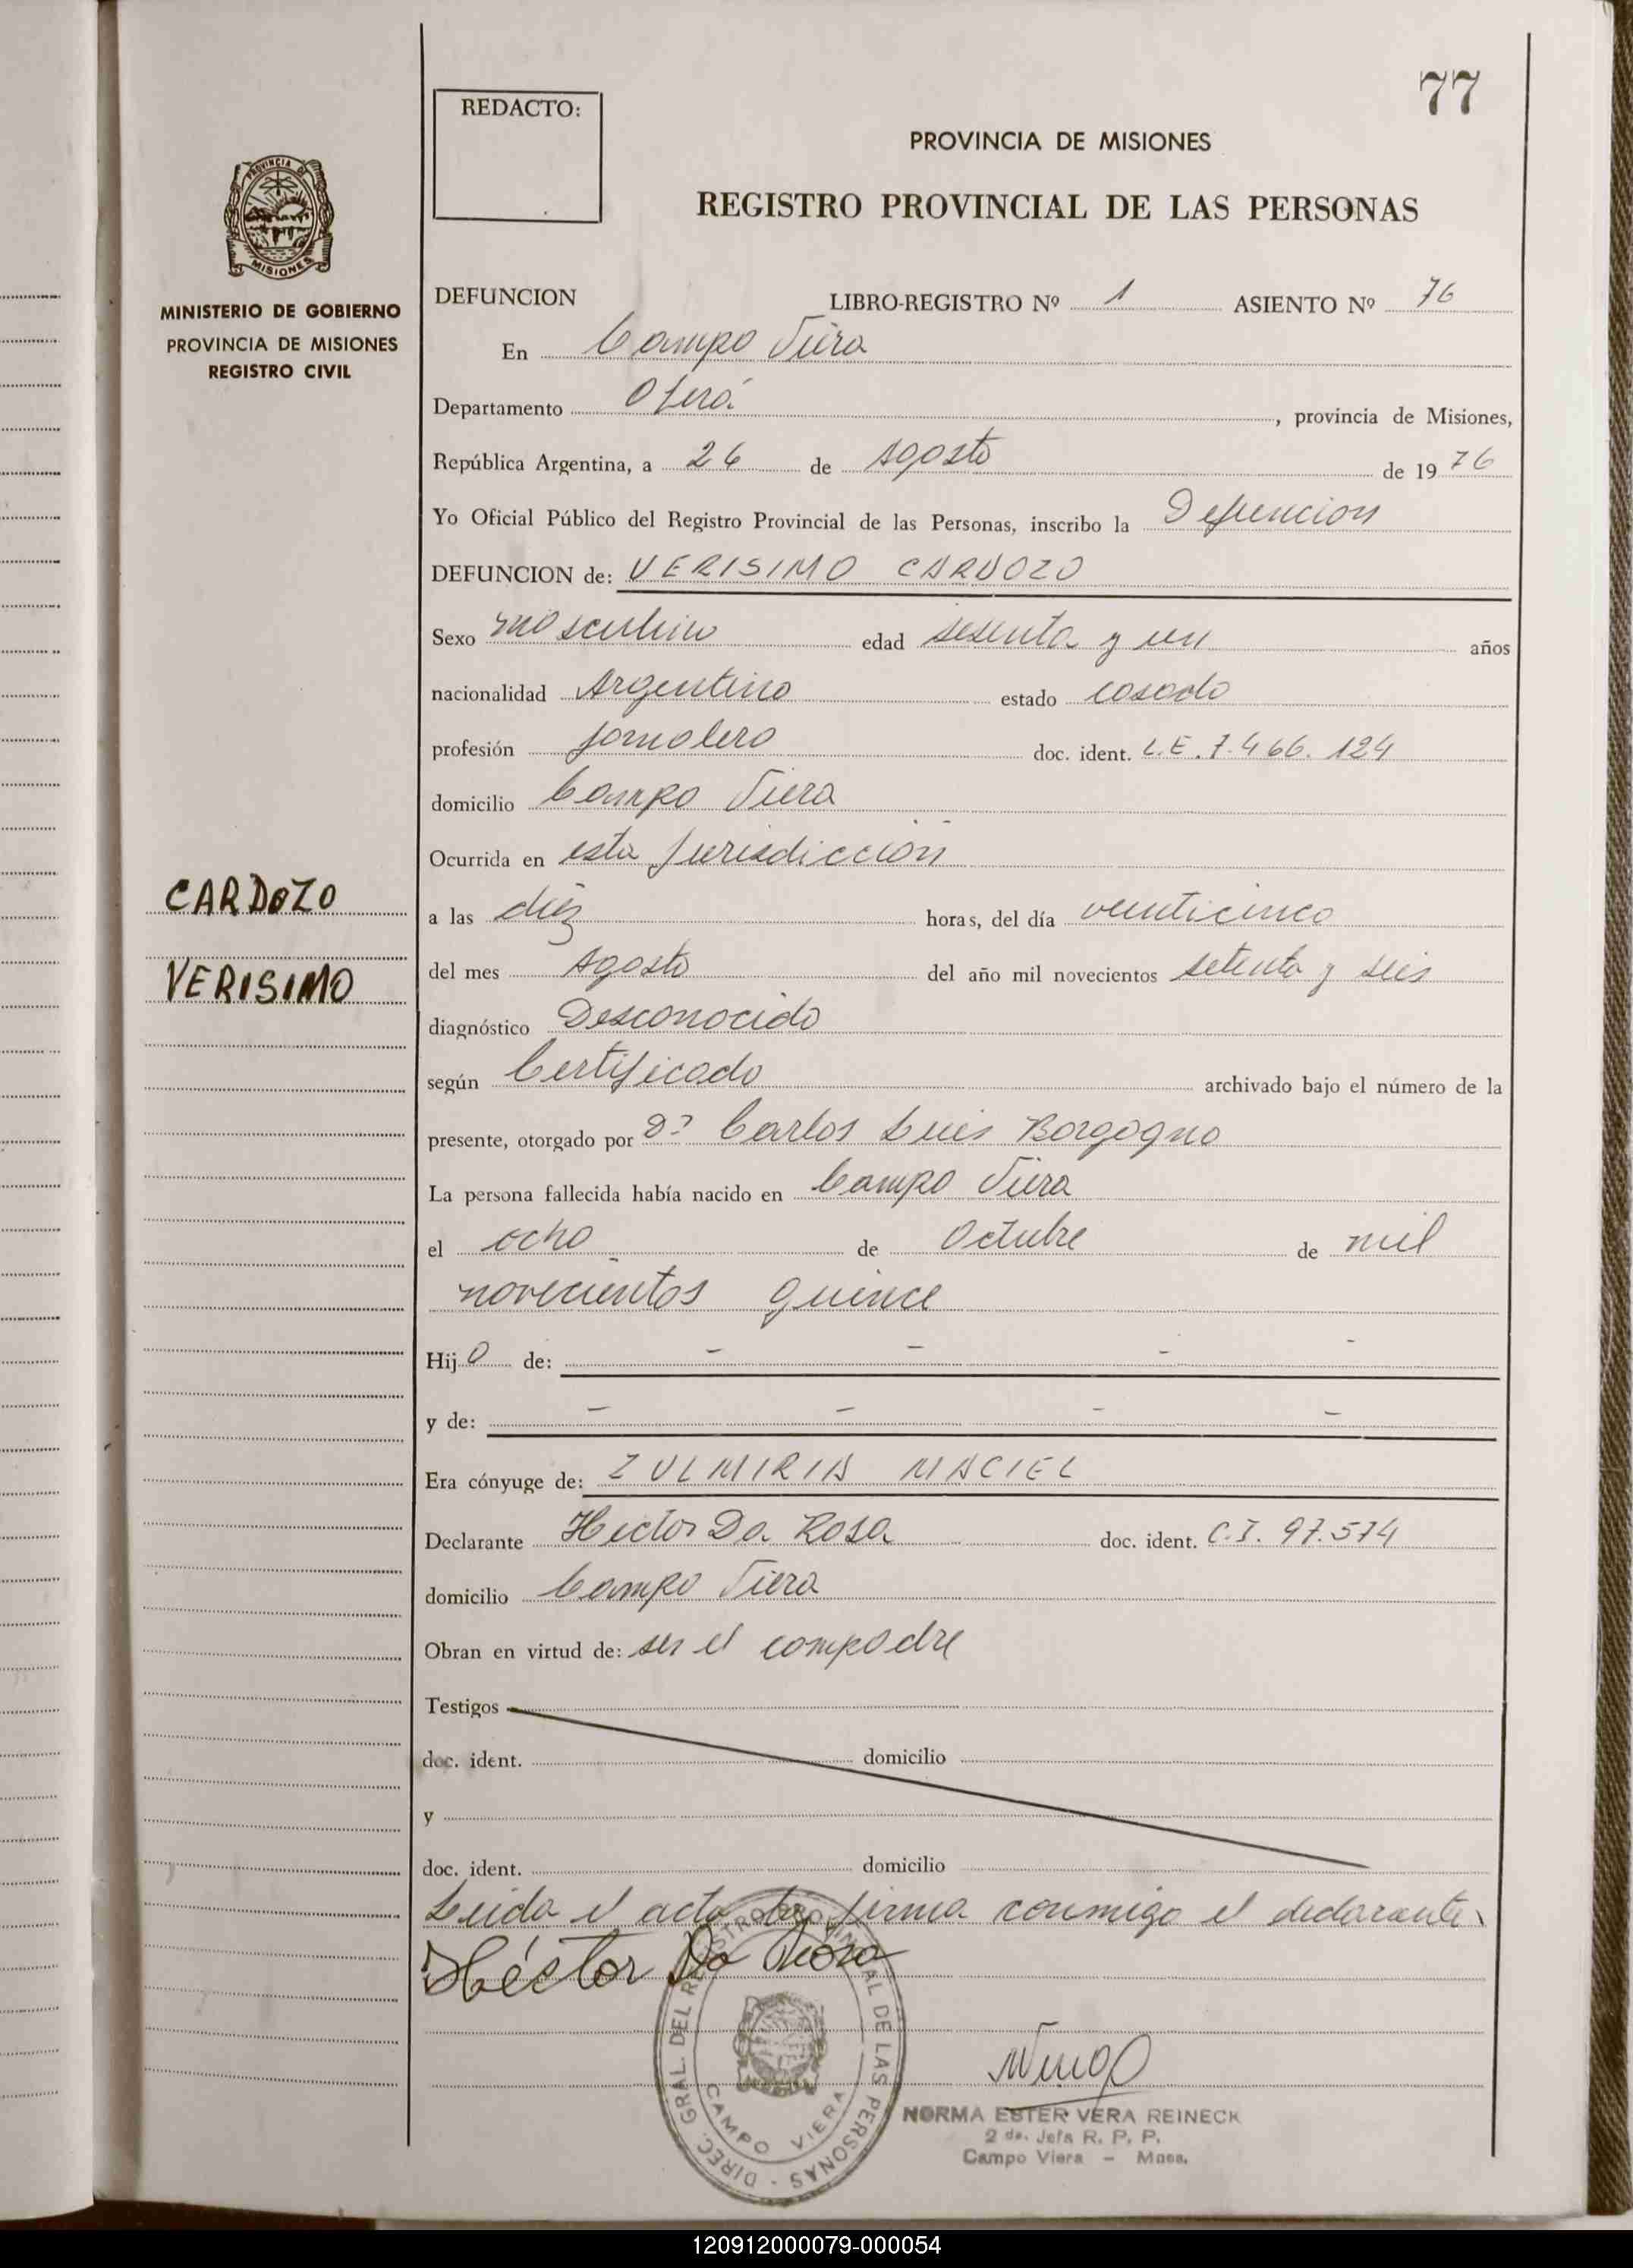 77
REDACTO:
PROVINCIA DE MISIONES
REGISTRO PROVINCIAL DE LAS PERSONAS
PROVINCIA DE
MISIONES
MINISTERIO DE GOBIERNO
PROVINCIA DE MISIONES
REGISTRO CIVIL
DEFUNCION LIBRO-REGISTRO Nº 1 ASIENTO Nº 76
En Campo Viera
Departamento Oberá, provincia de Misiones,
República Argentina, a 26 de Agosto de 1976
Yo Oficial Público del Registro Provincial de las Personas, inscribo la Defuncion
DEFUNCION de: VERISIMO CARDOZO
Sexo masculino edad sesenta y un años
nacionalidad Argentino estado casado
profesión jornalero doc. ident. L.E. 7.466.124
domicilio Campo Viera
Ocurrida en esta Jurisdicción
CARDOZO
a las diéz horas, del día veinticinco
VERISIMO
del mes Agosto del año mil novecientos setenta y seis
diagnóstico Desconocido
según Certificado archivado bajo el número de la
presente, otorgado por Dr Carlos Luis Borgogno
La persona fallecida había nacido en Campo Viera
el ocho de Octubre de mil
novecientos quince
Hijo de: - - - -
y de: - - - -
Era cónyuge de: ZULMIRIA MACIEL
Declarante Hector Da Rosa doc. ident. C.I. 97.574
domicilio Campo Viera
Obran en virtud de: ser el compadre
Testigos
doc. ident. domicilio
y
doc. ident. domicilio
Leida el acta la firma conmigo el declarante
Héctor Da Rosa
DIREC. GRAL. DEL REGISTRO PROVINCIAL DE LAS PERSONAS -
CAMPO VIERA
NORMA ESTER VERA REINECK
2 da. Jefa R. P. P.
Campo Viera - Mnes.
120912000079-000054